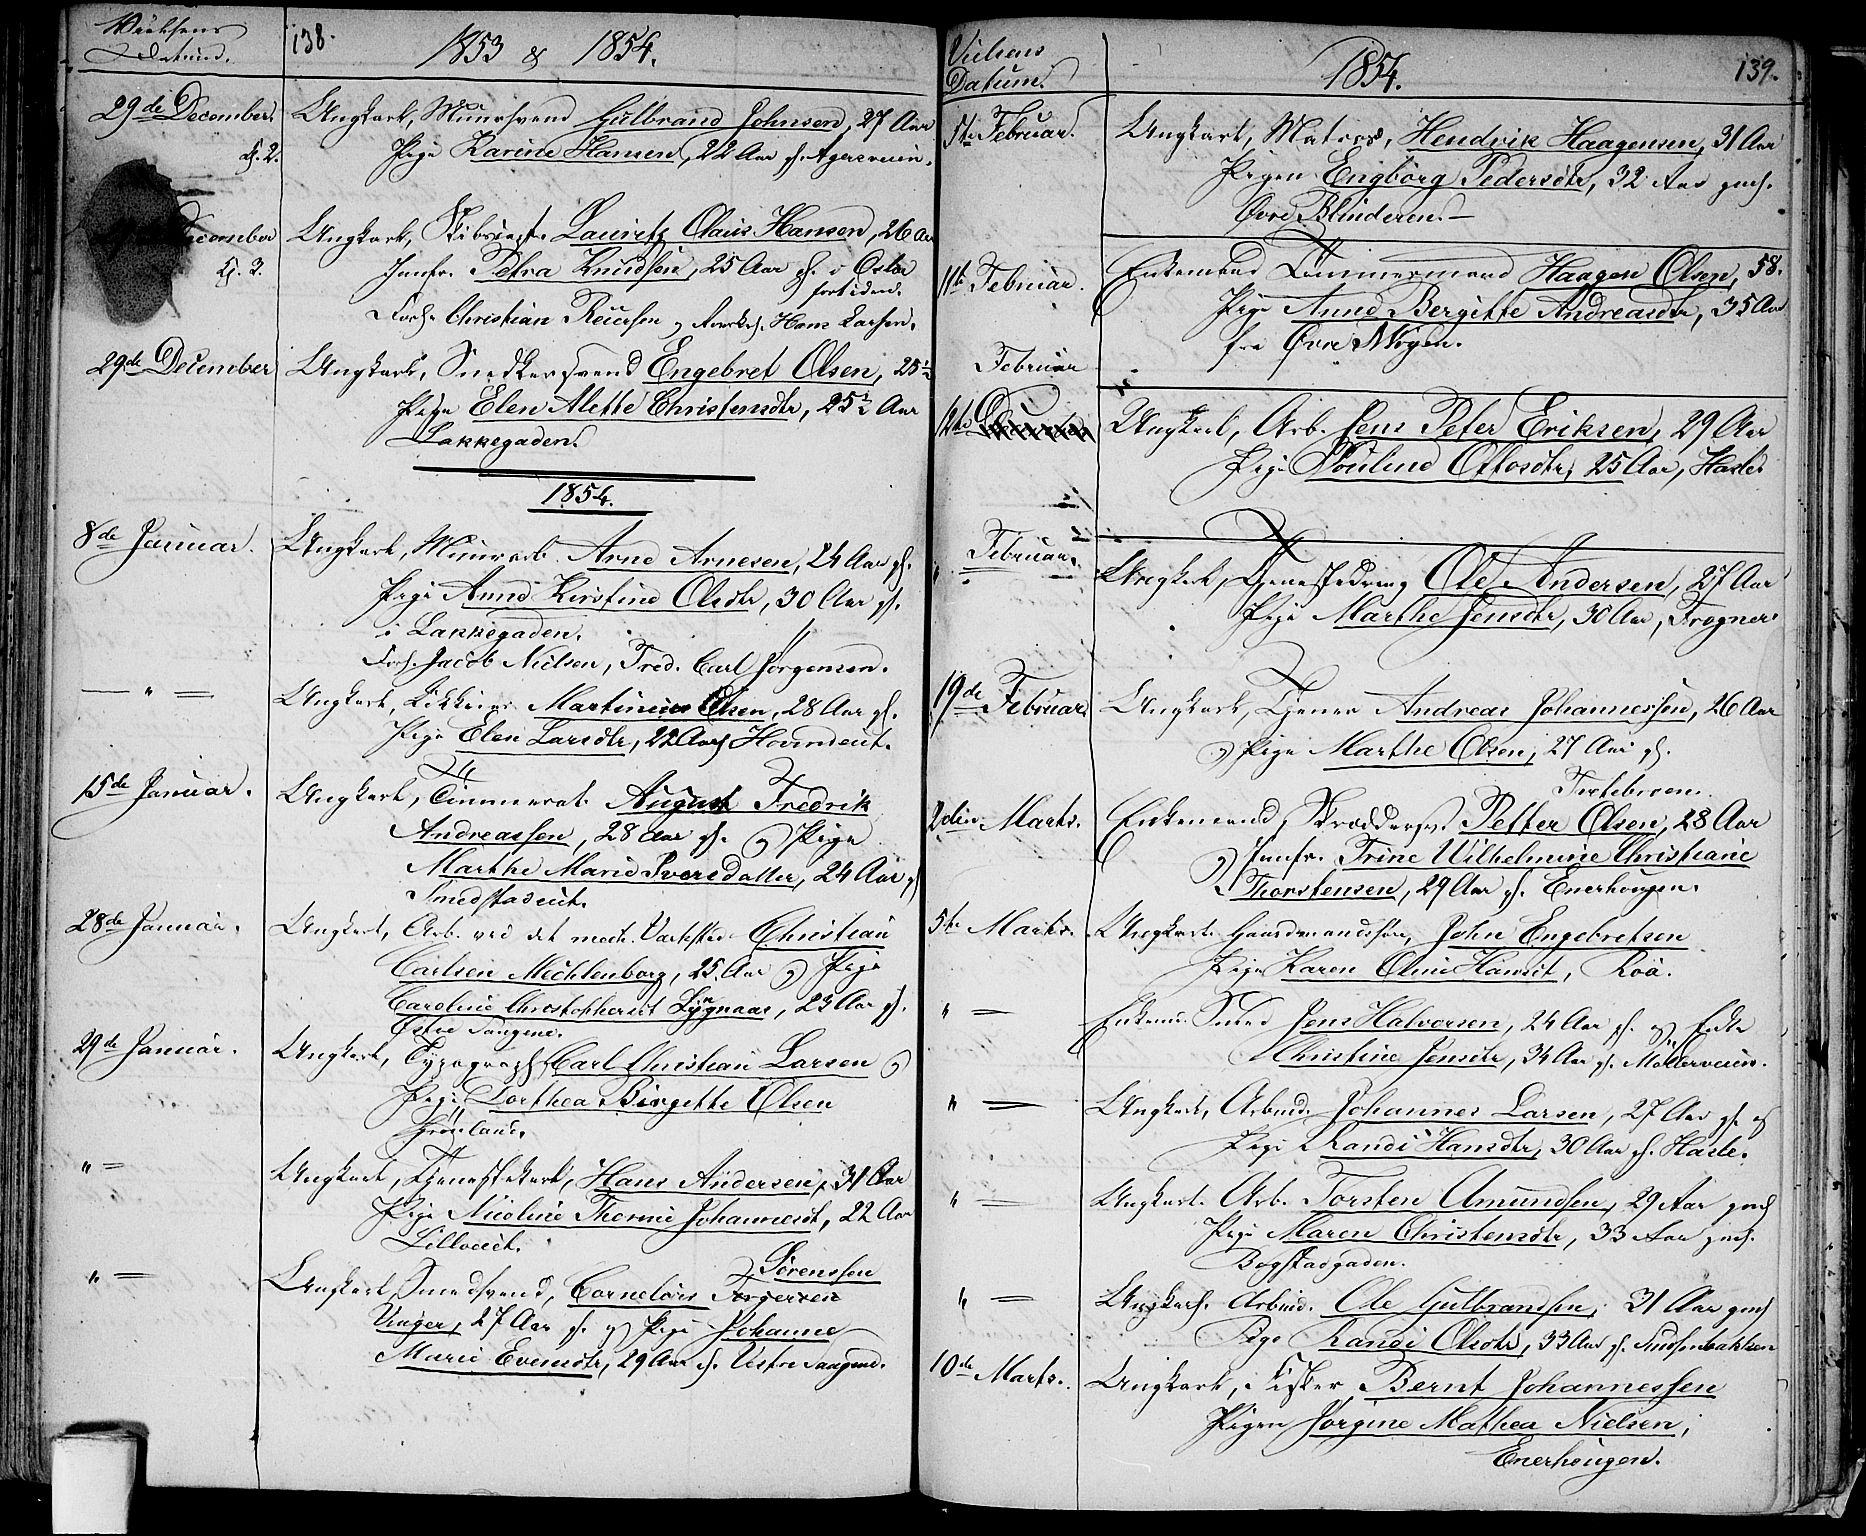 Vielsens
Datum.
138.
1853 & 1854.
29de December.
Kl. 2.
Ungkarl, Muursvend Gulbrand Johnsen, 27 Aar
Pige Karine Hansen, 22 Aar gl. Agersveien.
December
Kl. 3.
Ungkarl, Lauritz Claus Hansen, 26 Aar
Jomfr. Petra Knudsen, 25 Aar gl. i Oslo
fortiden.
Forl. Christian Reiersen og Hans Larsen.
29de December
Ungkarl, Snedkersvend Engebret Olsen, 25½
Pige Elen Alette Christensdtr, 25½ Aar
Lakkegaden.
1854.
8de Januar.
Ungkarl, Muurarb. Arne Arnesen, 24 Aar gl.
Pige Anne Kirstine Olsdtr, 30 Aar gl.
i Lakkegaden.
Forl. Jacob Nielsen, Fred. Carl Jörgensen.
— " —
Ungkarl, Martinius Olsen, 28 Aar gl.
Pige Elen Larsdtr, 22 Aar
15de Januar.
Ungkarl, Tömmerat. August Fredrik
Andreassen, 28 Aar gl. og Pige
Marthe Marie Iversdatter, 24 Aar gl
Smedstadeiet.
28de Januar.
Ungkarl, Arb. ved det mech. Værksted Christian
Carlsen Mechlenborg, 25 Aar og Pige
Caroline Christophersdt Lygnaas, 23 Aar gl.
Östre Sangene.
29de Januar.
Ungkarl, Typograph Carl Christian Larsen og
Pige Dorthea Birgitte Olsen
Grönland.
" —
Ungkarl, Tjenestekarl, Hans Andersen, 31 Aar
Pige Nicoline Thorine Johannesdt, 22 Aar
" —
Sörenssen
Ungkarl, Smedsvend, Cornelius Torgersen
Unger, 27 Aar gl. og Pige Johanne
Marie Evensdtr, 29 Aar gl. Vestre Sangene.
Vielsens
Datum.
1854.
139.
5te Februar.
Ungkarl, Matros, Hendrik Haagensen, 31 Aar
Pigen Engborg Pedersdtr, 32 Aar gml.
Övre Blinderen.—
11te Februar.
Enkemand Tömmermand Haagen Olsen, 58.
Pige Anne Bergitte Andreasdtr, 35 Aar
fra Övre
Februar
12te
Ungkarl, Arb. Jens Peter Eriksen, 29 Aar
Pige Pouline Ottosdtr, 25 Aar, Hasle
" Februar.
Ungkarl, Tjenestedreng Ole Andersen, 27 Aar
Pige Marthe Jensdtr, 30 Aar, Frogner
19de Februar.
Ungkarl, Tjener Andreas Johannessen, 26 Aar
og Pige Marthe Olsen, 27 Aar gl.
Tertebroen.
2den Marts.
Enkemand, Skræddersv. Petter Olsen, 28 Aar
og Jomfr. Trine Wilhelmine Christiane
Thorstensen, 29 Aar gl. Enerhougen.
5te Marts.
Ungkarl Gaardmandssön, John Engebretsen
Pige Karen Oline Hansdt, Röa.
" —
Enkem. Smed Jens Halvorsen, 24 Aar gl. og Enke
Christine Jensdtr, 34 Aar gl. Möllerveien.
" —
Ungkarl, Arbeid. Johannes Larsen, 27 Aar gl. og
Pige Randi Hansdtr, 30 Aar gl. Hasle.
" —
Ungkarl. Arb. Torsten Amundsen, 29 Aar gml
Pige Maren Christensdtr, 33 Aar gml.
Bogstadgaden.
" —
Ungkarl. Arbeid. Ole Gulbrandsen, 31 Aar gml
Pige Randi Olsdtr, 33 Aar gl.
10de Marts.
Ungkarl, Fisker Bernt Johannessen
Pigen Jörgine Mathea Nielsen,
Enerhougen.